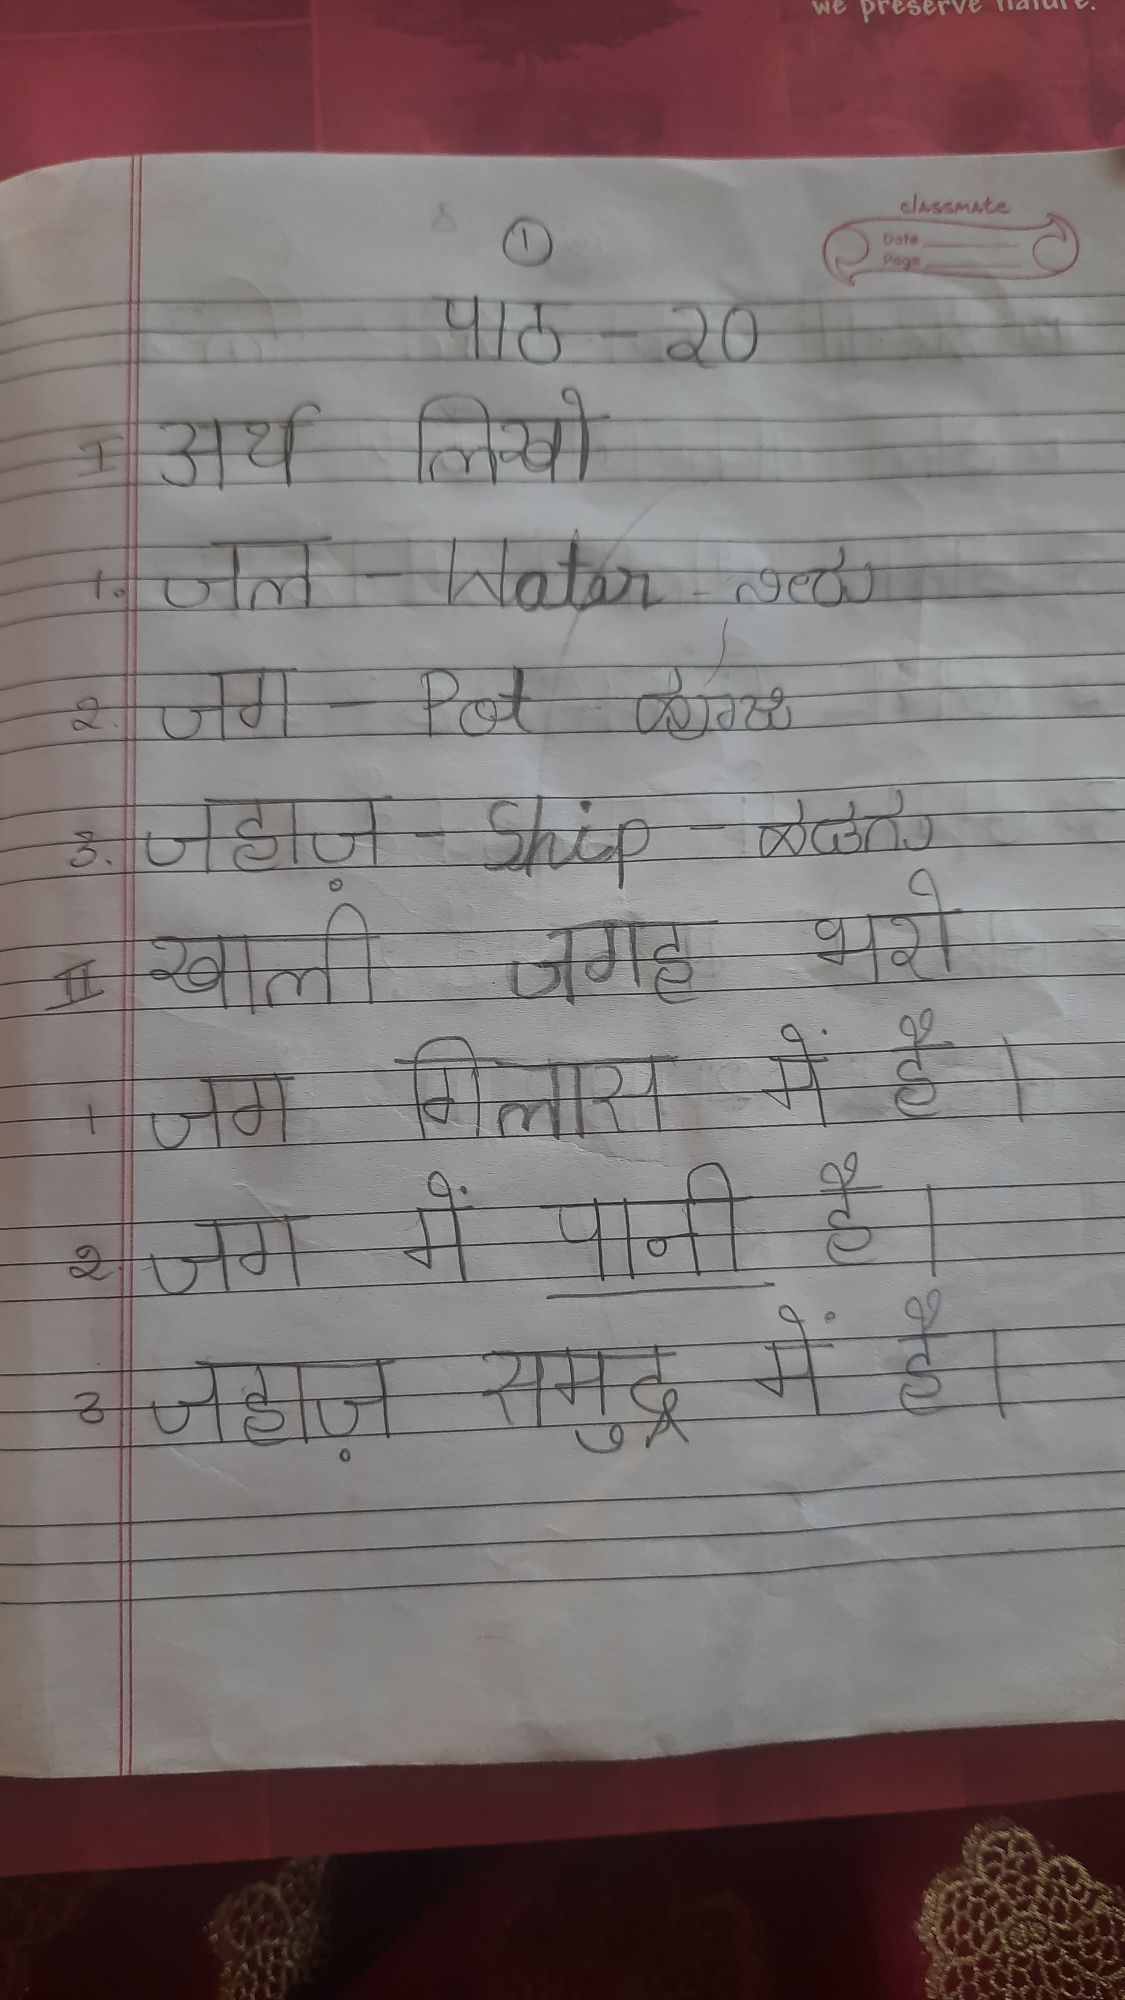 we preserve nature.
classmate
Date
Page
①
पाठ - 20
I अर्थ लिखो
1. जल - Water - ನೀರು
2. जग - Pot
3. जहाज़ - Ship - ಹಡಗು
II खाली जगह भरो
1 जग गिलास में हैं।
2. जग में पानी हैं।
3 जहाज़ समुद्र में हैं।